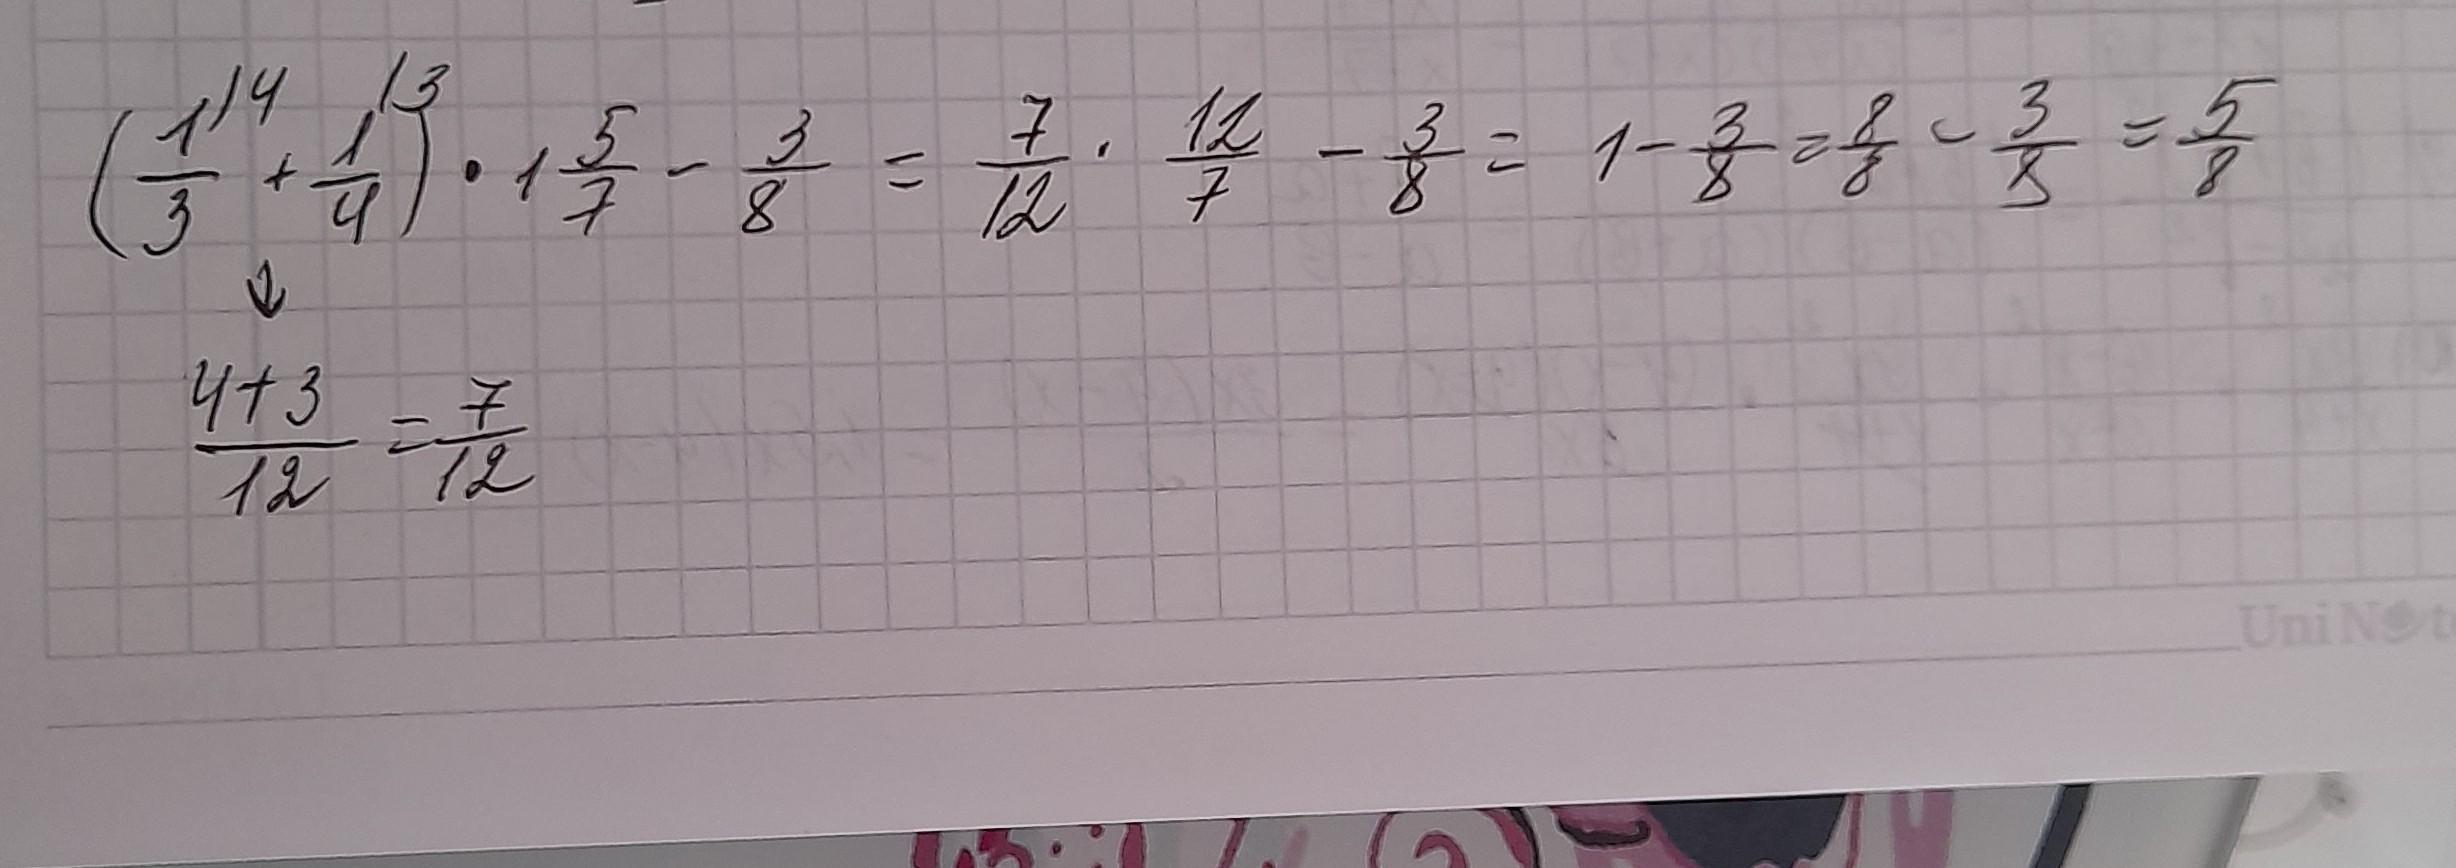 (1/3 /4 + 1/4 /3) • 1 5/7 - 3/8 = 7/12 · 12/7 - 3/8 = 1 - 3/8 = 8/8 - 3/8 = 5/8
↓
4+3/12 = 7/12
UniNote